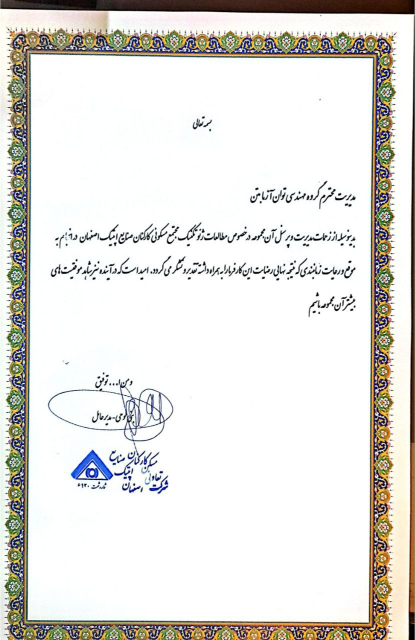 بسمه تعالی
مدیریت محترم گروه مهندسی توان آزما بتن
بدینوسیله از زحمات مدیریت و پرسنل آن مجموعه در خصوص مطالعات ژئوتکنیک مجتمع مسکونی کارکنان صنایع اپتیک اصفهان در انجام به
موقع و رعایت زمانبندی که نتیجه نهایی رضایت این کارفرما را به همراه داشته تقدیر و تشکر می گردد. امید است که در آینده نیز شاهد موفقیت های
بیشتر آن مجموعه باشیم
و من ا... توفیق
مدیر عامل
شرکت تعاونی مسکن کارکنان صنایع اپتیک اصفهان
شماره ثبت ۶۹۲۰